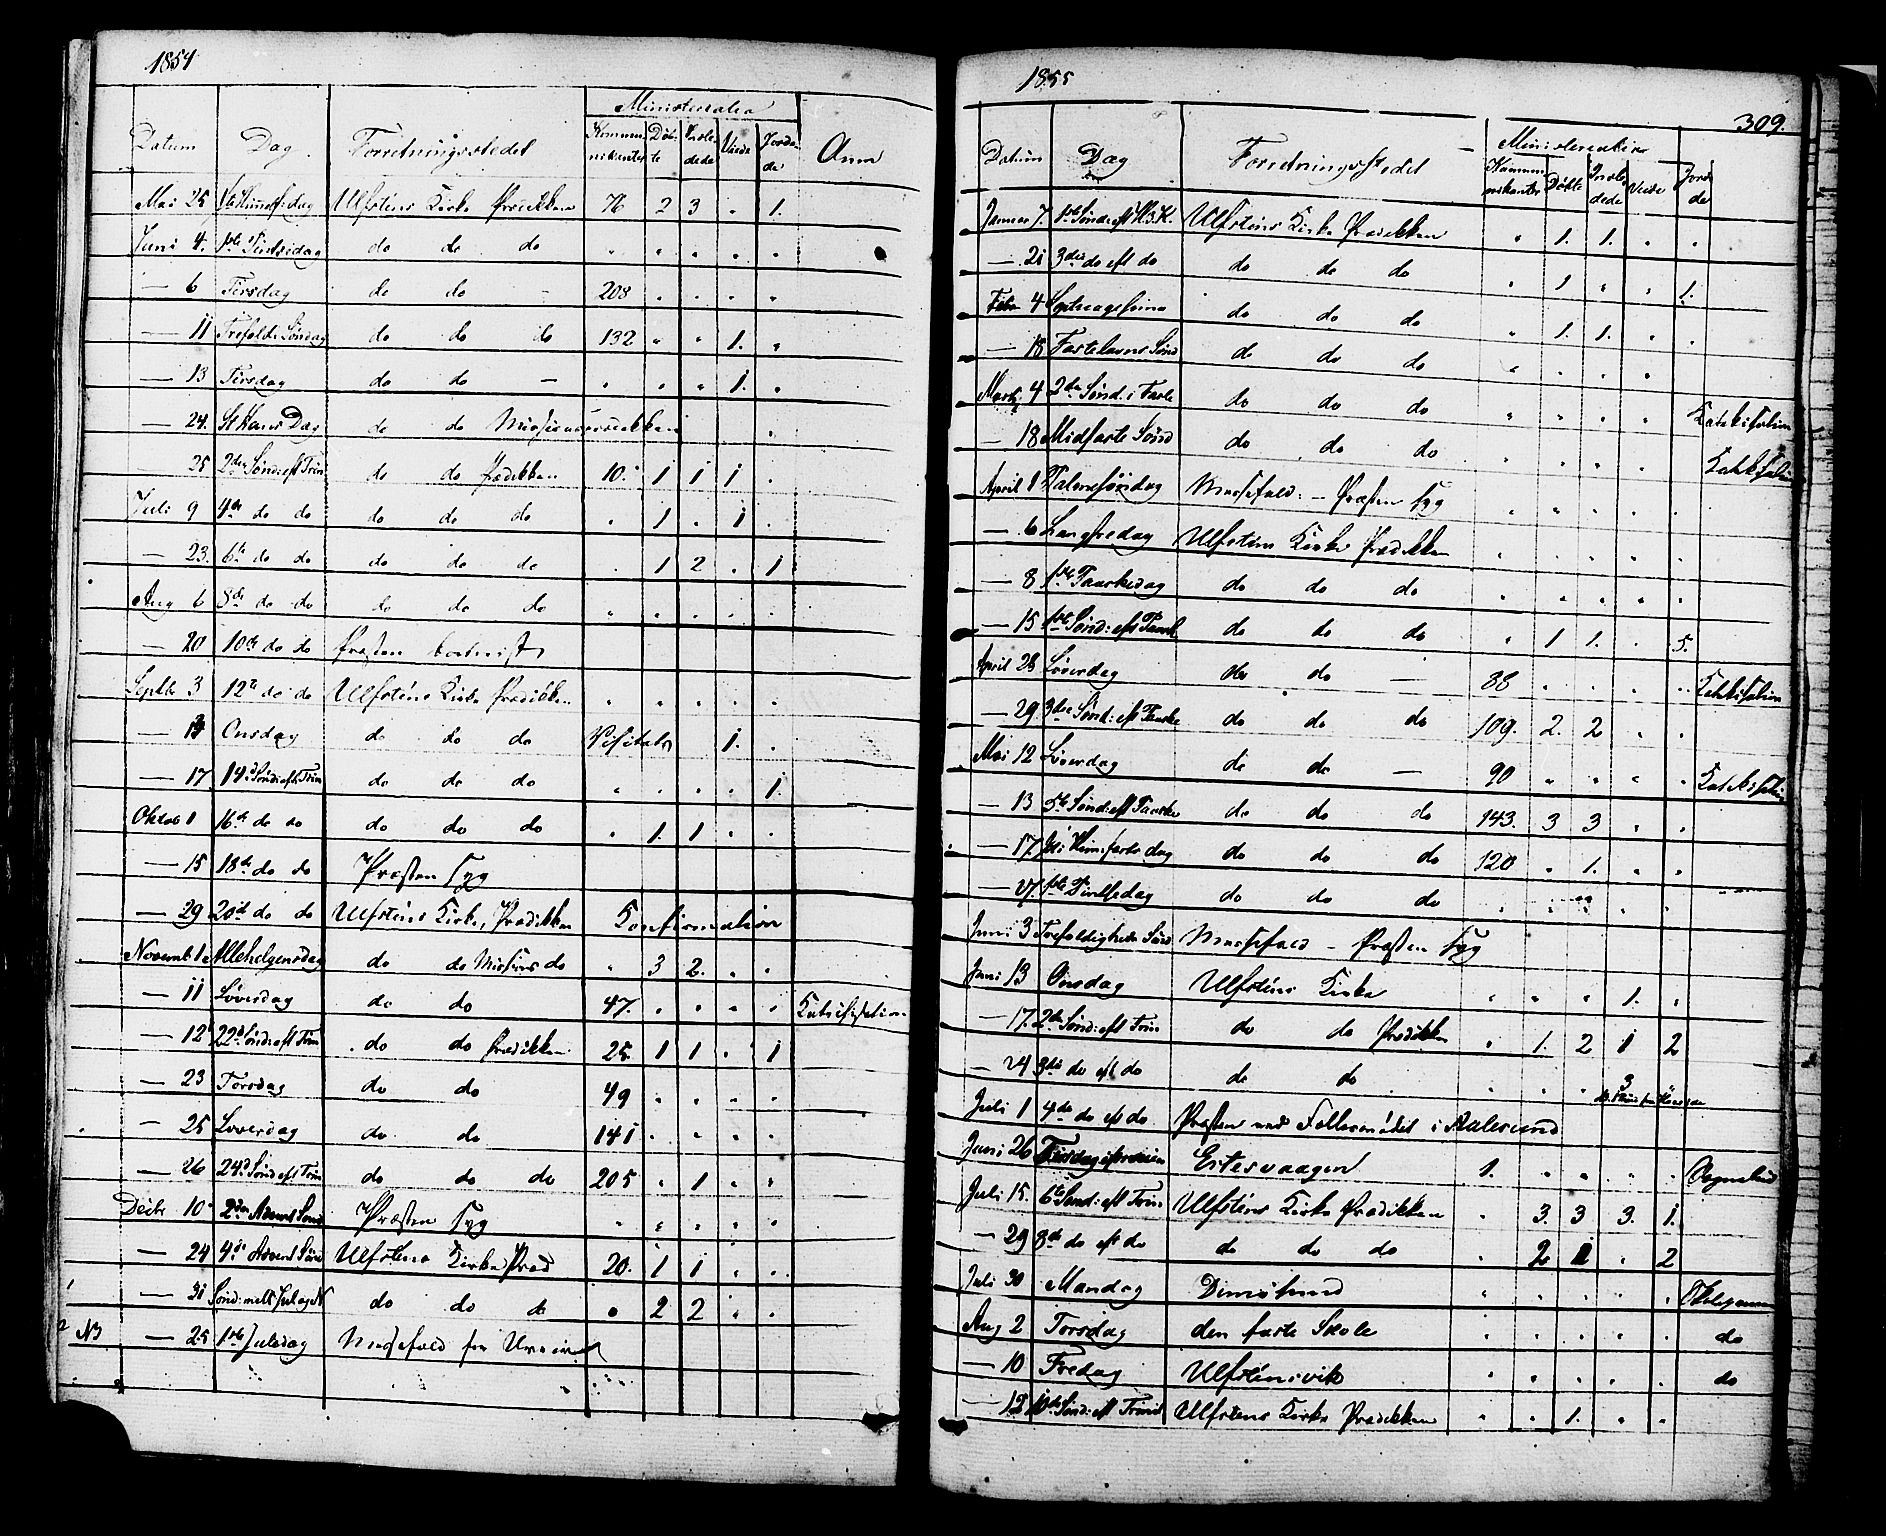 1854
Ministerialia
Datum Dag Forretningsstedet Kommunikanter Døbte Indledede Viede Jordede Anm
Mai 25 Chr. Himmelf: dag Ulfstens Kirke Prædikken 76 2 3 " 1.
Juni 4. 1ste Pintsedag do do do " " " " "
— 6 Tirsdag do do — 208 " " " "
— 11 Trefold: Søndag do do do 132 " " 1. "
— 13 Tirsdag do do — " " " 1. "
24. St Hans Dag do do Missionsprædikken "
— 25 2den Sønd: eft Trin do do Prædikken 10. 1 1 1 "
Juli 9 4de do do do do do " 1 " 1 "
— 23. 6te do do do do do " 1 2 " 1
Aug 6 8de do do do do do " " " " "
— 20 10de do do Præsten bortreist
Septbr 3 12te do do Ulfstens Kirke Prædikken " " " " "
— Onsdag do do do Visitats 1. "
— 17 14de Sønd: eft Trin do do do " " " " 1.
Oktob 1 16de do do do do do " 1. 1 " "
— 15 18de do do Præsten Syg
— 29 20de do do Ulfstens Kirke, Prædikken Konfirmation
Novemb 1 Allehelgensdag do do Missions do " 3 2. " "
— 11 Løverdag do do 47. " " " " Katechisation
— 12 22de Sønd: eft Trin do do Prædikken 25 1 1 " 1
— 23 Torsdag do do 49 " " " "
— 25 Løverdag do do 141 " " " "
— 26 24de Sønd: eft Trin do do do 205 " 1 " "
Decbr 10 2den Advent Sønd Præsten Syg " " " " "
— 24 4de Advent Sønd Ulfstens Kirke Præd 20. 1 1 " "
— 31 Sønd: mell: Jul og N do do do " 2 2 " "
NB — 25 1ste Juledag Messefald for Uveir
1855
309.
Ministerialier
Datum Dag Forretningsstedet Kommunikanter Døbte Indledede Viede Jordede
Januar 7. 1ste Sønd: eft H.3.K. Ulfstens Kirke Prædikken " 1. 1. " "
— 21 3die do eft do do do do " 1 " " 1.
Febr 4 Septuagesima do do do " 1. 1. " "
— 18 Fastelavns Sønd do do do " " " " "
Marts 4 2den Sønd. i Faste do do do " " " " " Katekisation
— 18 Midfaste Sønd do do do " " " " Katekisation
April 1 Palmesøndag Messefald: — Præsten Syg " " " " "
— 6 Langfredag Ulfstens Kirke Prædikken " " " " "
— 8 1ste Paaskedag do do do " " " " "
— 15 1ste Sønd: eft Paask do do do " 1 1. " 5.
April 28 Løverdag do do — 88 " " " " Katekisation
— 29 3die Sønd: eft Paaske do do do 109. 2. 2 " "
Mai 12 Løverdag do do — 90 " " " " Katekisation
— 13 5te Sønd: eft Paaske do do do 143. 3 3 " "
— 17. Chr: Himmelfarts dag do do do 120 " 1. " "
— 27. 1ste Pintsedag do do do " " " " "
Juni 3 Trefoldigheds Sønd Messefald — Præsten Syg
Juni 13 Onsdag Ulfstens Kirke " " " 1. "
— 17. 2den Sønd: eft Trin do do Prædikken " 1. 2 1 2
— 24 3die do eft do do do " " " 3
Juli 1 4de do eft do Præsten ved Fællesmødet i Aalesund
Juni 26 Tirsdag Eitersvaagen 1. " " " " Sognebud
Juli 15. 6te Sønd: eft Trin Ulfstens Kirke Prædikken " 3. 3 3. 1.
— 29 8de do eft do do do do " 2 1 " 2
Juli 30 Mandag Dimøsund " " " " "
Aug 2 Torsdag den faste Skole " " " " " do
— 10 Fredag Ulfstensvik " " " " " do
— 12 10de Sønd: eft Trinit Ulfstens Kirke Prædikken " " 1. " "